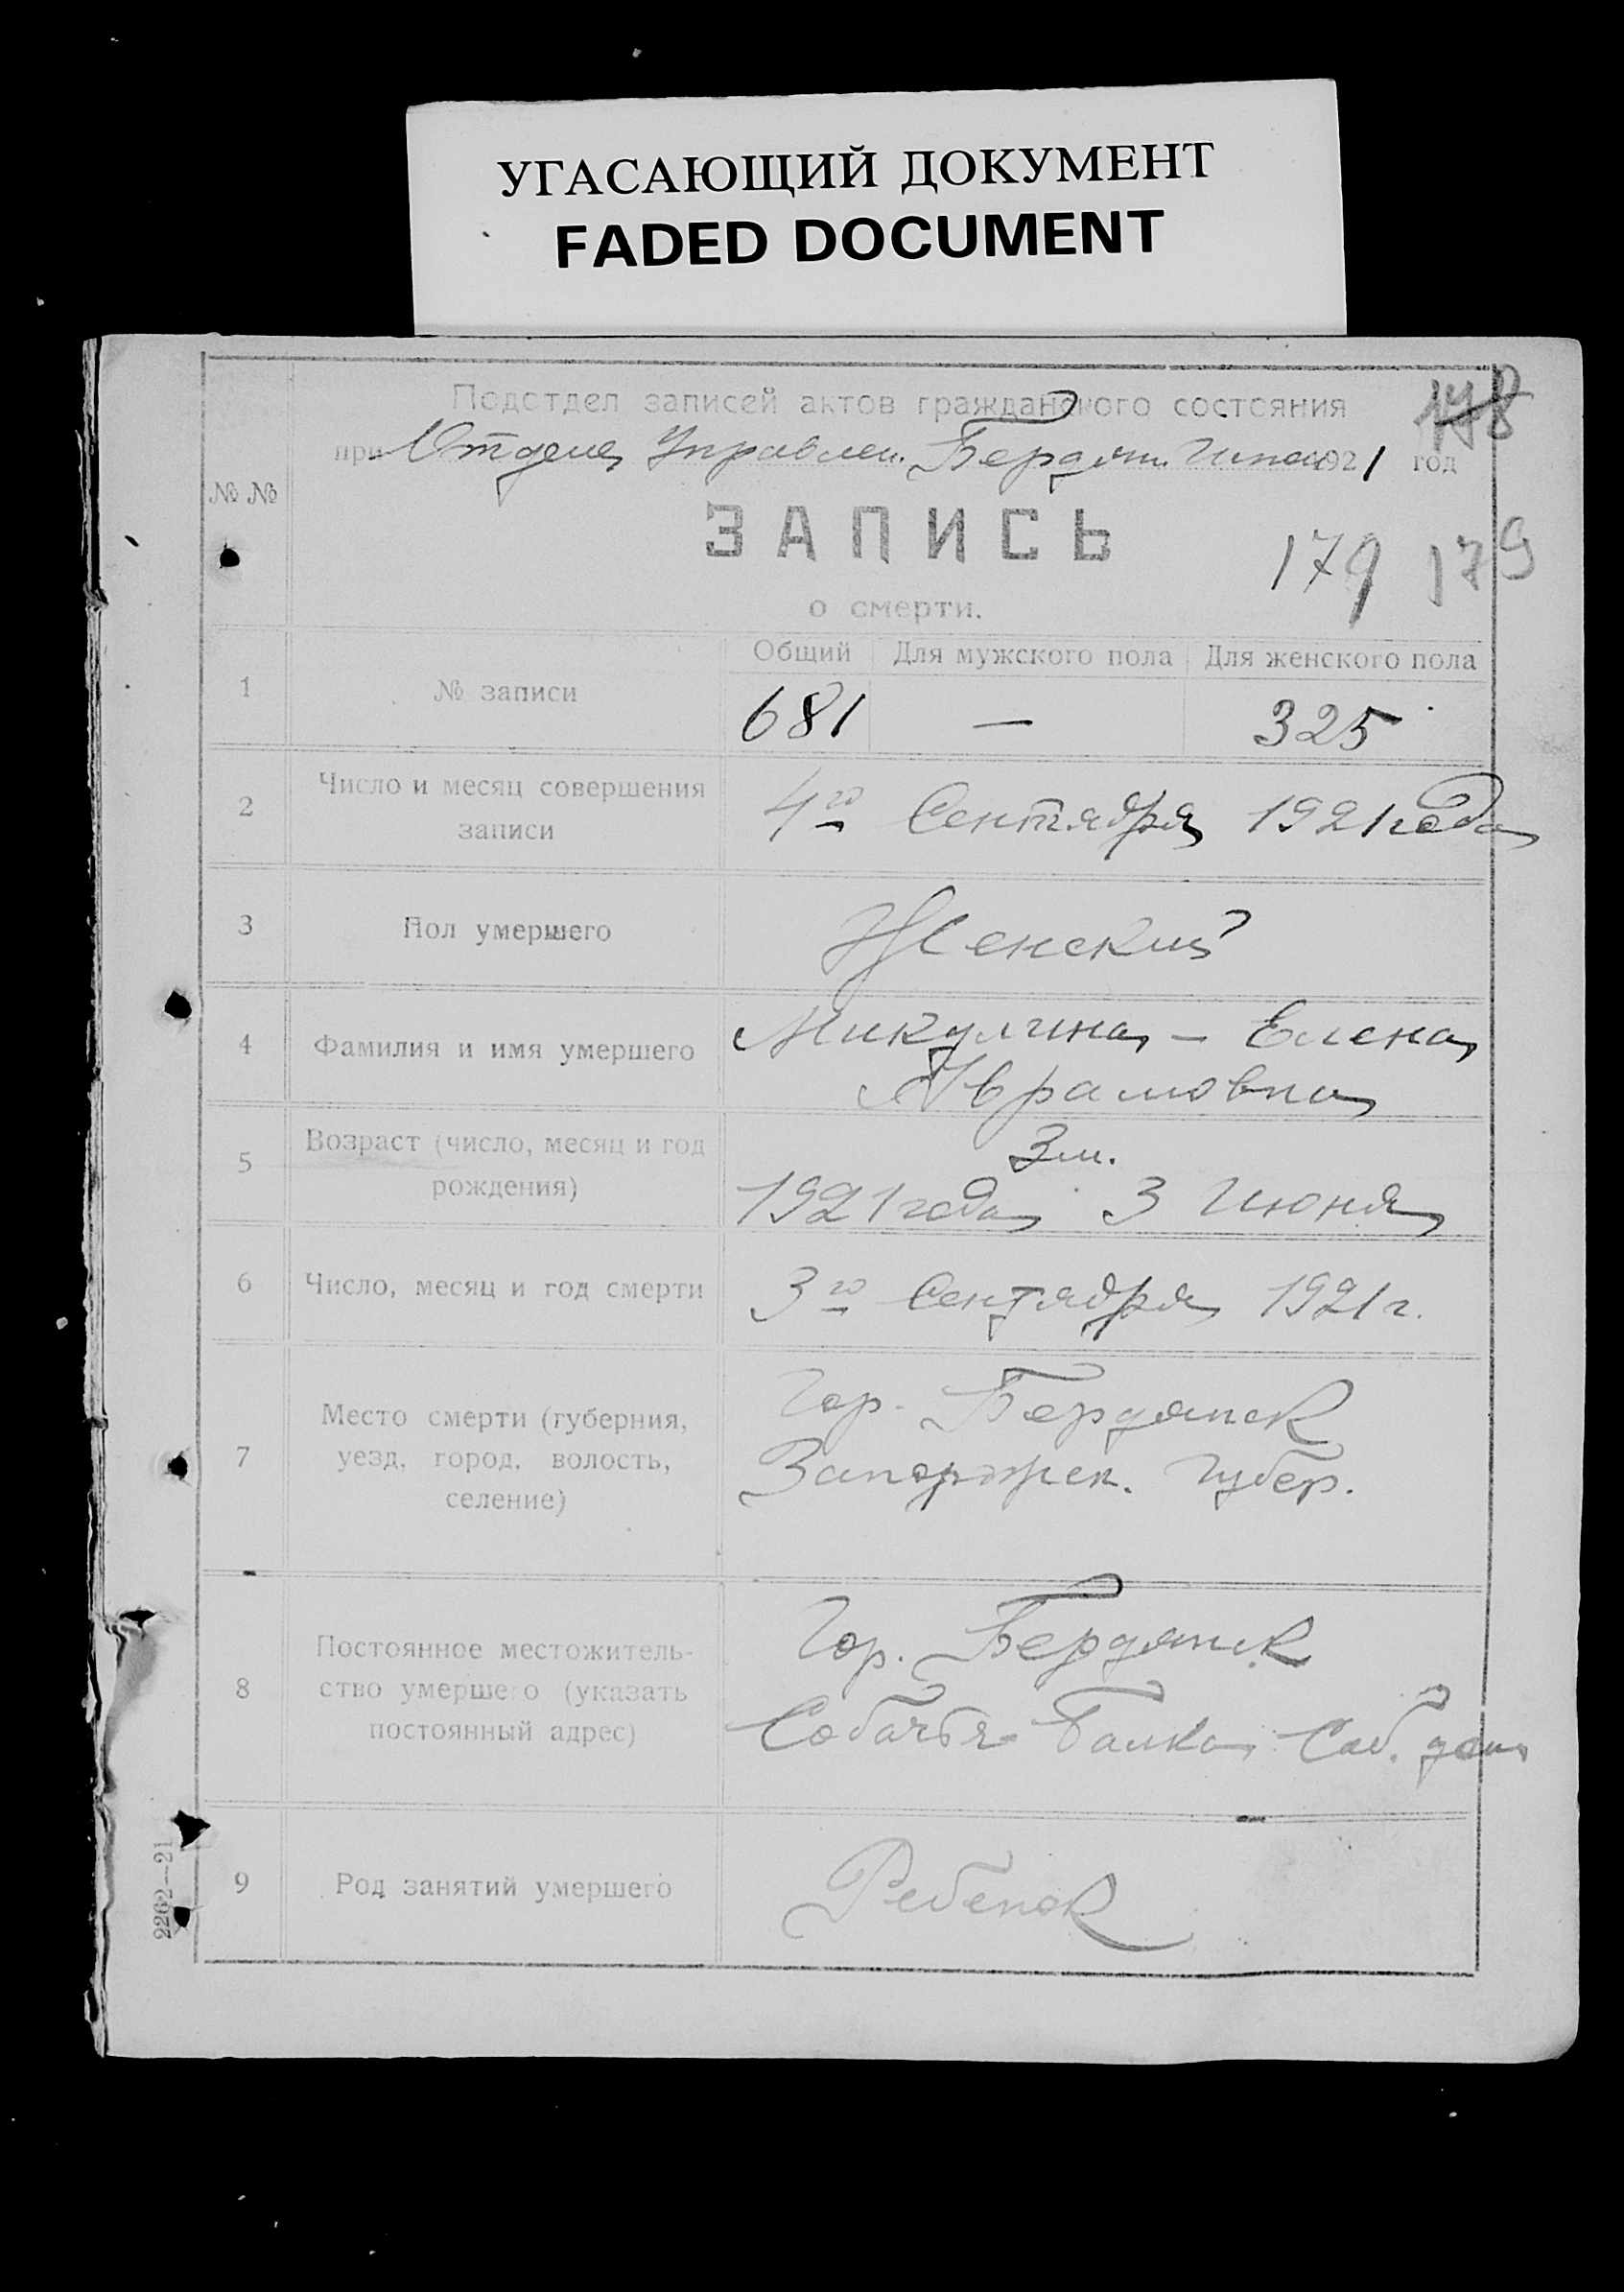 УГАСАЮЩИЙ ДОКУМЕНТ
FADED DOCUMENT
Подотдел записей актов гражданского состояния
178
при Отделе Управлен. Бердян. 1921 год
№ №
ЗАПИСЬ
179 179
о смерти.
Общий Для мужского пола Для женского пола
1 № записи
681 — 325
2 Число и месяц совершения
записи
4го Сентября 1921 года
3 Пол умершего
Женский
4 Фамилия и имя умершего
Микулина - Елена
Аврамовна
5 Возраст (число, месяц и год
рождения)
3 м.
1921 года 3 Июня
6 Число, месяц и год смерти
3го Сентября 1921 г.
7 Место смерти (губерния,
уезд, город, волость,
селение)
Гор. Бердянск
Запорожск. Губер.
8 Постоянное местожитель-
ство умершего (указать
постоянный адрес)
Гор. Бердянск
Собачья Балка Соб. дом
9 Род занятий умершего
Ребенок
2262—21